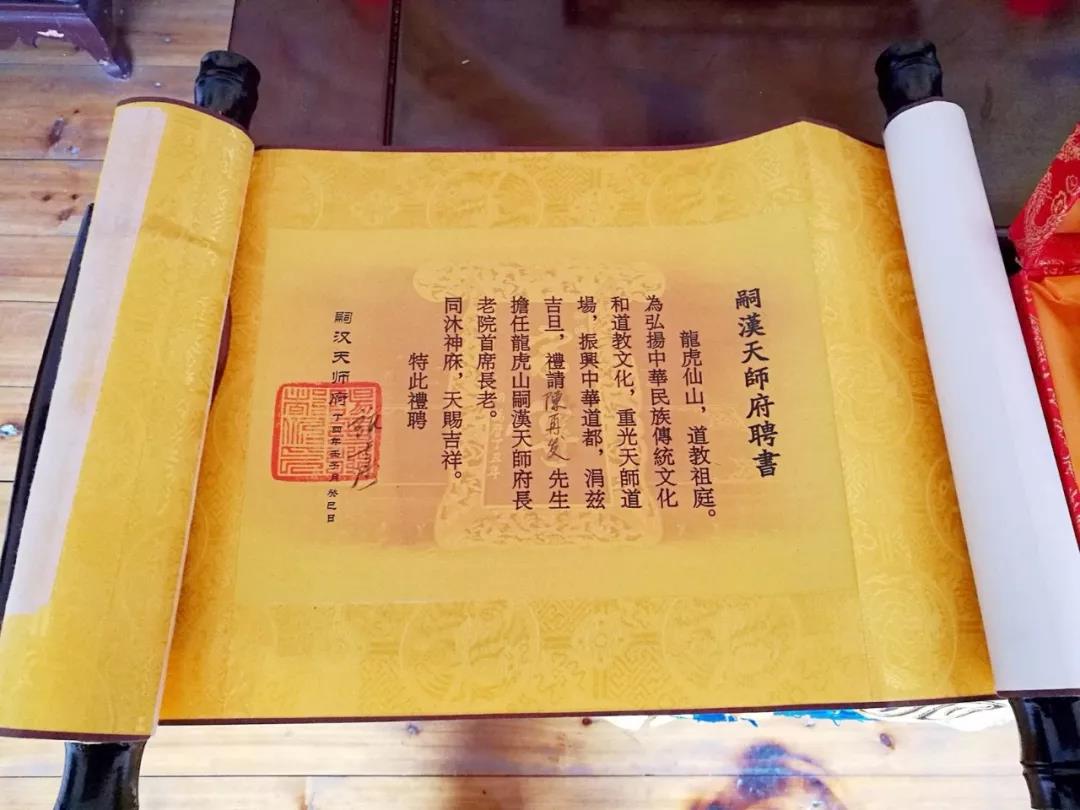 嗣漢天師府聘書
龍虎仙山，道教祖庭。
為弘揚中華民族傳統文化
和道教文化，重光天師道
場，振興中華道都，涓兹
吉旦，禮請陳再生先生
擔任龍虎山嗣漢天師府長
老院首席長老。
同沐神庥，天賜吉祥。
特此禮聘
嗣汉天师府
丁酉年壬子月癸巳日